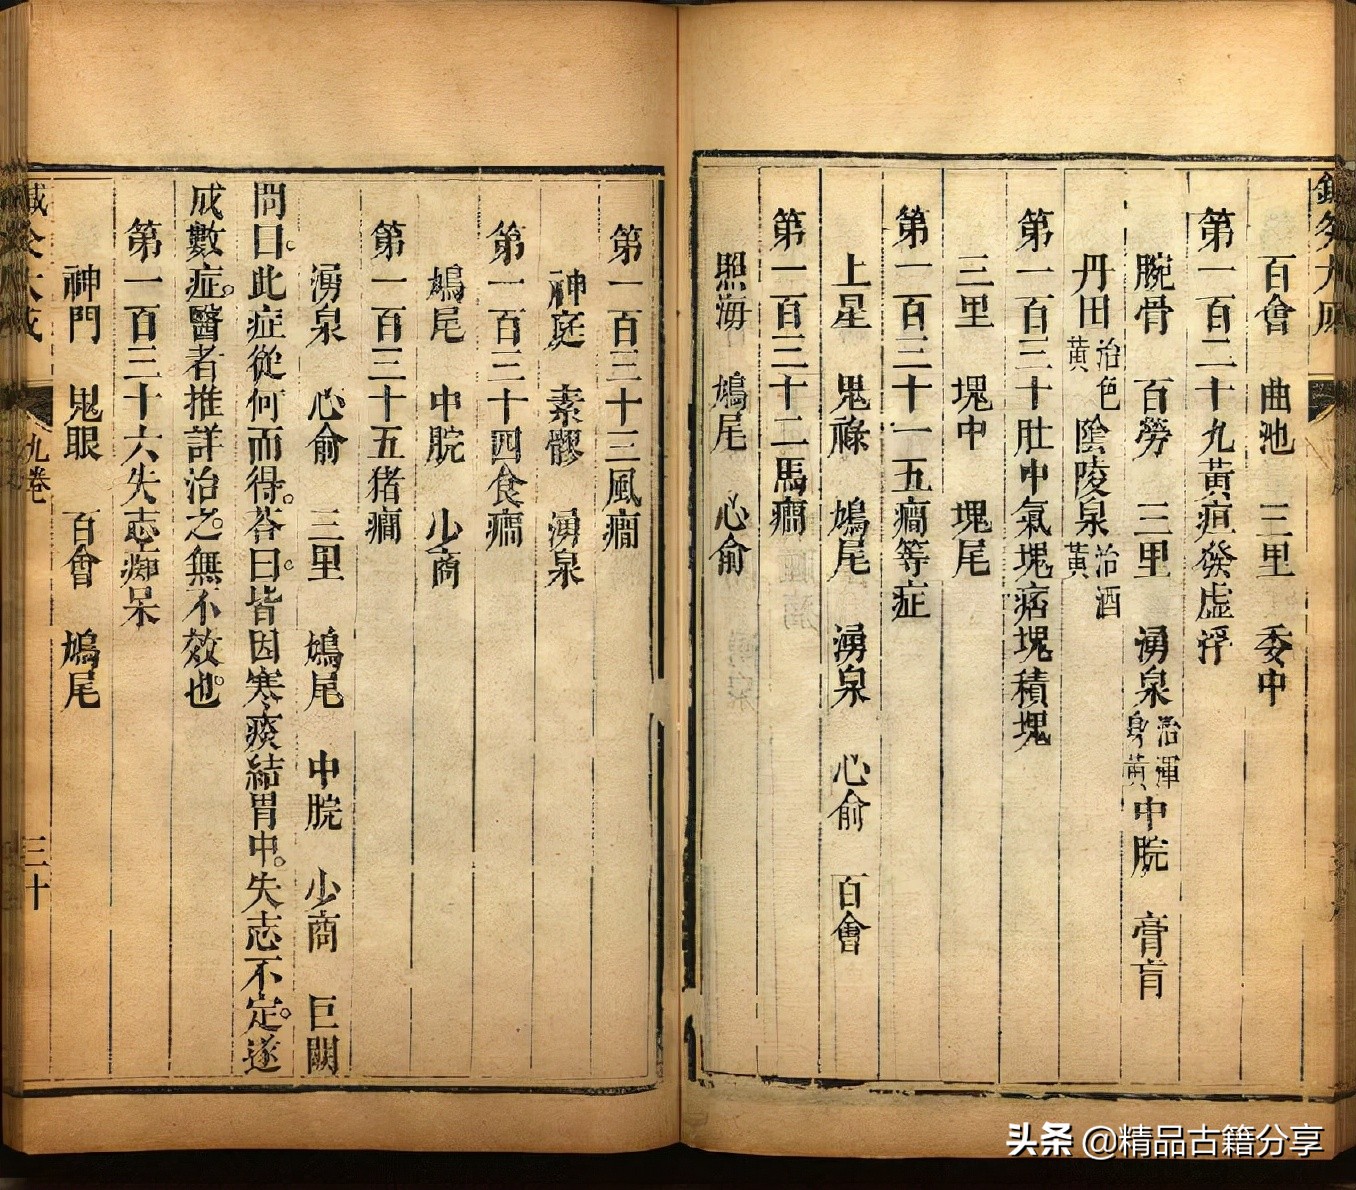 百會 曲池 三里 委中
第一百二十九黃疸發虛浮
腕骨 百勞 三里 湧泉治渾身黃 中脘 膏肓
丹田治色黃 陰陵泉治酒黃
第一百三十肚中氣塊痞塊積塊
三里 塊中 塊尾
第一百三十一五癇等症
上星 鬼祿 鳩尾 湧泉 心俞 百會
第一百三十二馬癇
照海 鳩尾 心俞
第一百三十三風癇
神庭 素髎 湧泉
第一百三十四食癇
鳩尾 中脘 少商
第一百三十五猪癇
湧泉 心俞 三里 鳩尾 中脘 少商 巨闕
問曰此症從何而得。答曰皆因寒痰結胃中。失志不定。遂
成數症。醫者推詳治之。無不效也。
第一百三十六失志痴呆
神門 鬼眼 百會 鳩尾
九卷
三十
头条 @精品古籍分享